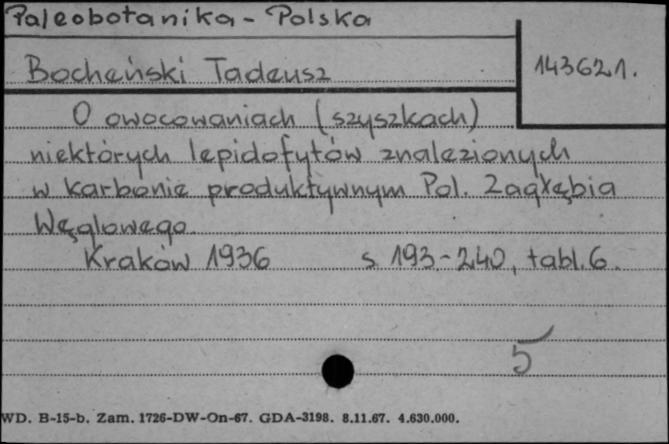 Paleobotanika - Polska
Bocheński Tadeusz
143621.
O owocowaniach (szyszkach)
niektórych lepidofytów znalezionych
w karbonie produktywnym Pol. Zagłębia
Węglowego
Kraków 1936 s. 193-240, tabl. 6.
5
WD. B-15-b. Zam. 1726-DW-On-67. GDA-3198. 8.11.67. 4.630.000.